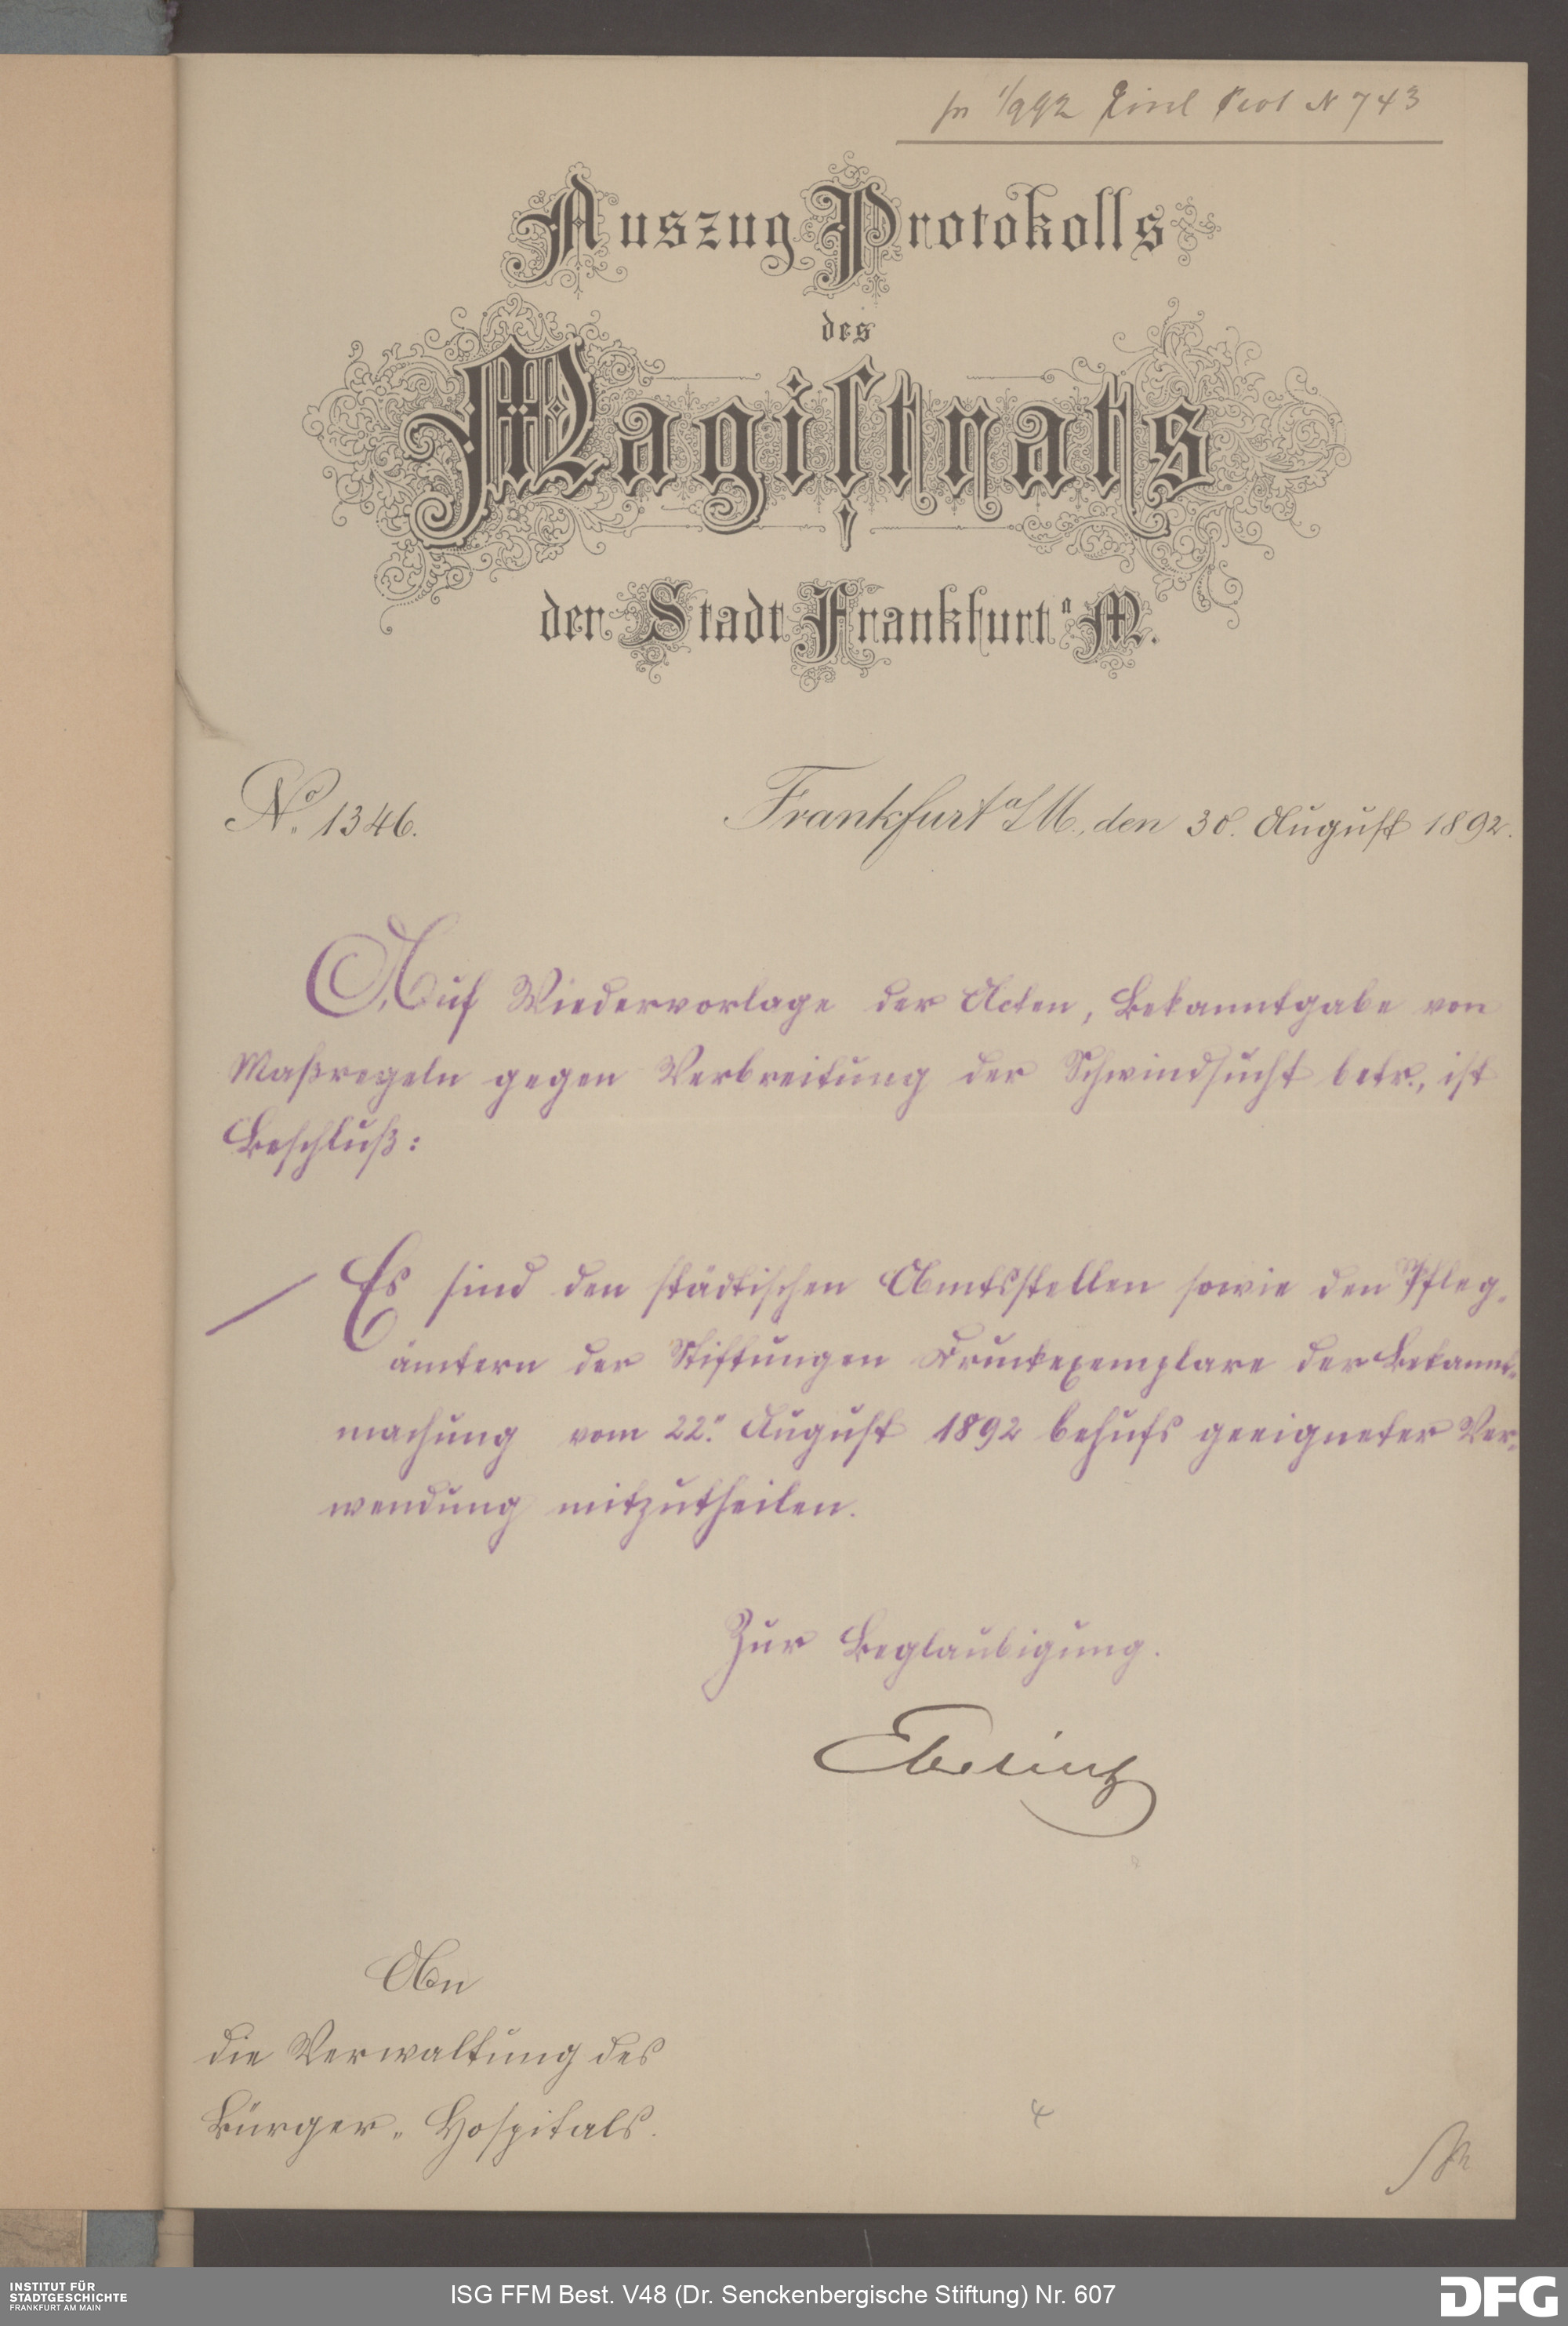 1/9 92 Einl Prot N 743
Auszug Protokolls
des
Magistrats
der Stadt Frankfurt a/M.
No. 1346.
Frankfurt a/M., den 30. August 1892.
Auf Wiedervorlage der Acten, Bekanntgabe von
Maßregeln gegen Verbreitung der Schwindsucht betr., ist
Beschluß:
Es sind den städtischen Amtsstellen sowie den Pfleg-
ämtern der Stiftungen Druckexemplare der Bekannt-
machung vom 22. August 1892 behufs geeigneter Ver-
wendung mitzutheilen.
Zur Beglaubigung.
An
die Verwaltung des
Bürger-Hospitals.
4
INSTITUT FÜR
STADTGESCHICHTE
FRANKFURT AM MAIN
ISG FFM Best. V48 (Dr. Senckenbergische Stiftung) Nr. 607
DFG